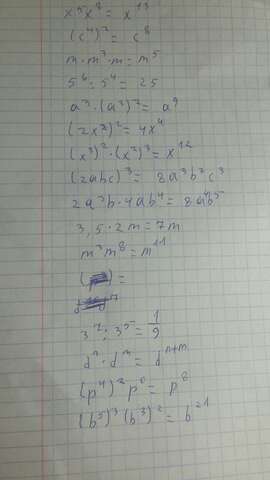 x⁵x⁸ = x¹³
(c⁴)² = c⁸
m · m³ · m = m⁵
5⁶ : 5⁴ = 25
a³ · (a³)² = a⁹
(2x²)² = 4x⁴
(x³)² · (x²)³ = x¹²
(2abc)³ = 8a³b³c³
2a³b · 4ab⁴ = 8a⁴b⁵
3,5 · 2m = 7m
m³m⁸ = m¹¹
( ) =
3 : 3 = 1/9
dⁿ · dᵐ = dⁿ⁺ᵐ
(p⁴)²p⁰ = p⁸
(b⁵)³(b³)² = b²¹